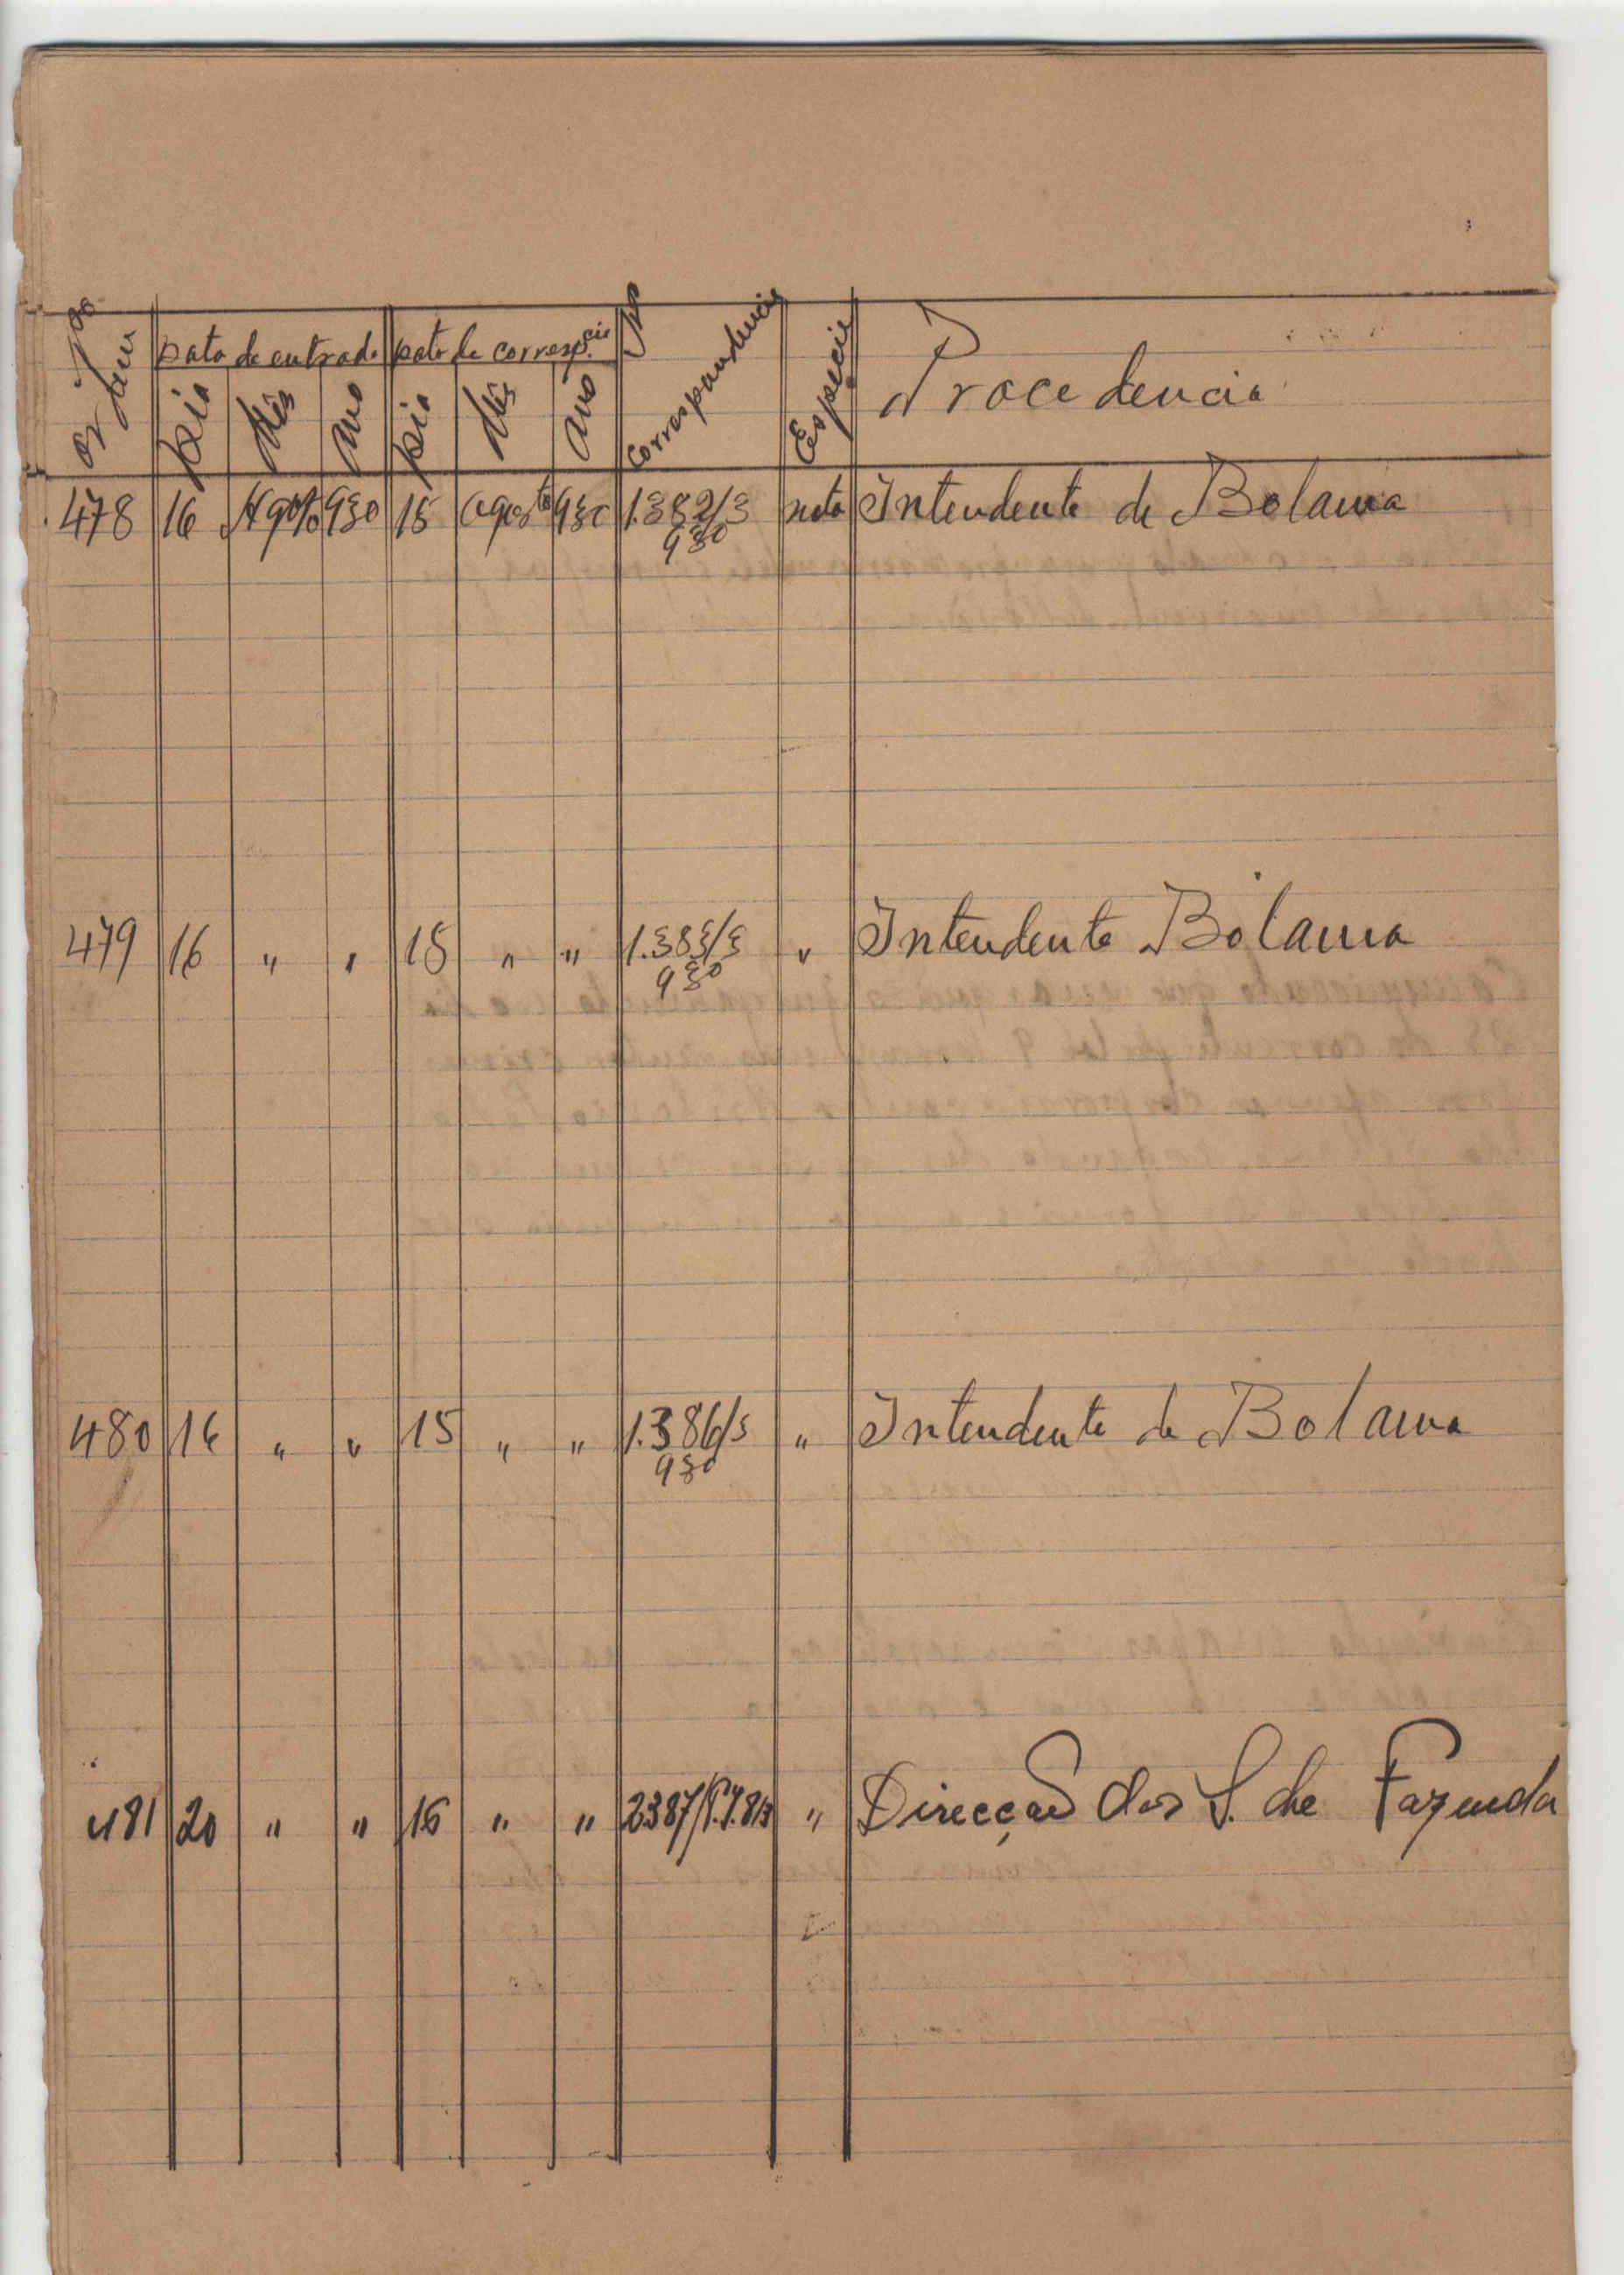 Nº de ordem | Data de entrada | Data de corresp.cia | Nº Correspondencia | Especie | Procedencia
Dia | Mês | Ano | Dia | Mês | Ano
478 | 16 | Agosto | 930 | 15 | Agosto | 930 | 1.382/3 | nota | Intendente de Bolama
930
479 | 16 | " | " | 15 | " | " | 1.383/3 | " | Intendente Bolama
930
480 | 16 | " | " | 15 | " | " | 1.386/3 | " | Intendente de Bolama
930
481 | 20 | " | " | 16 | " | " | 2387/ | " | Direcção dos S. de Fazenda